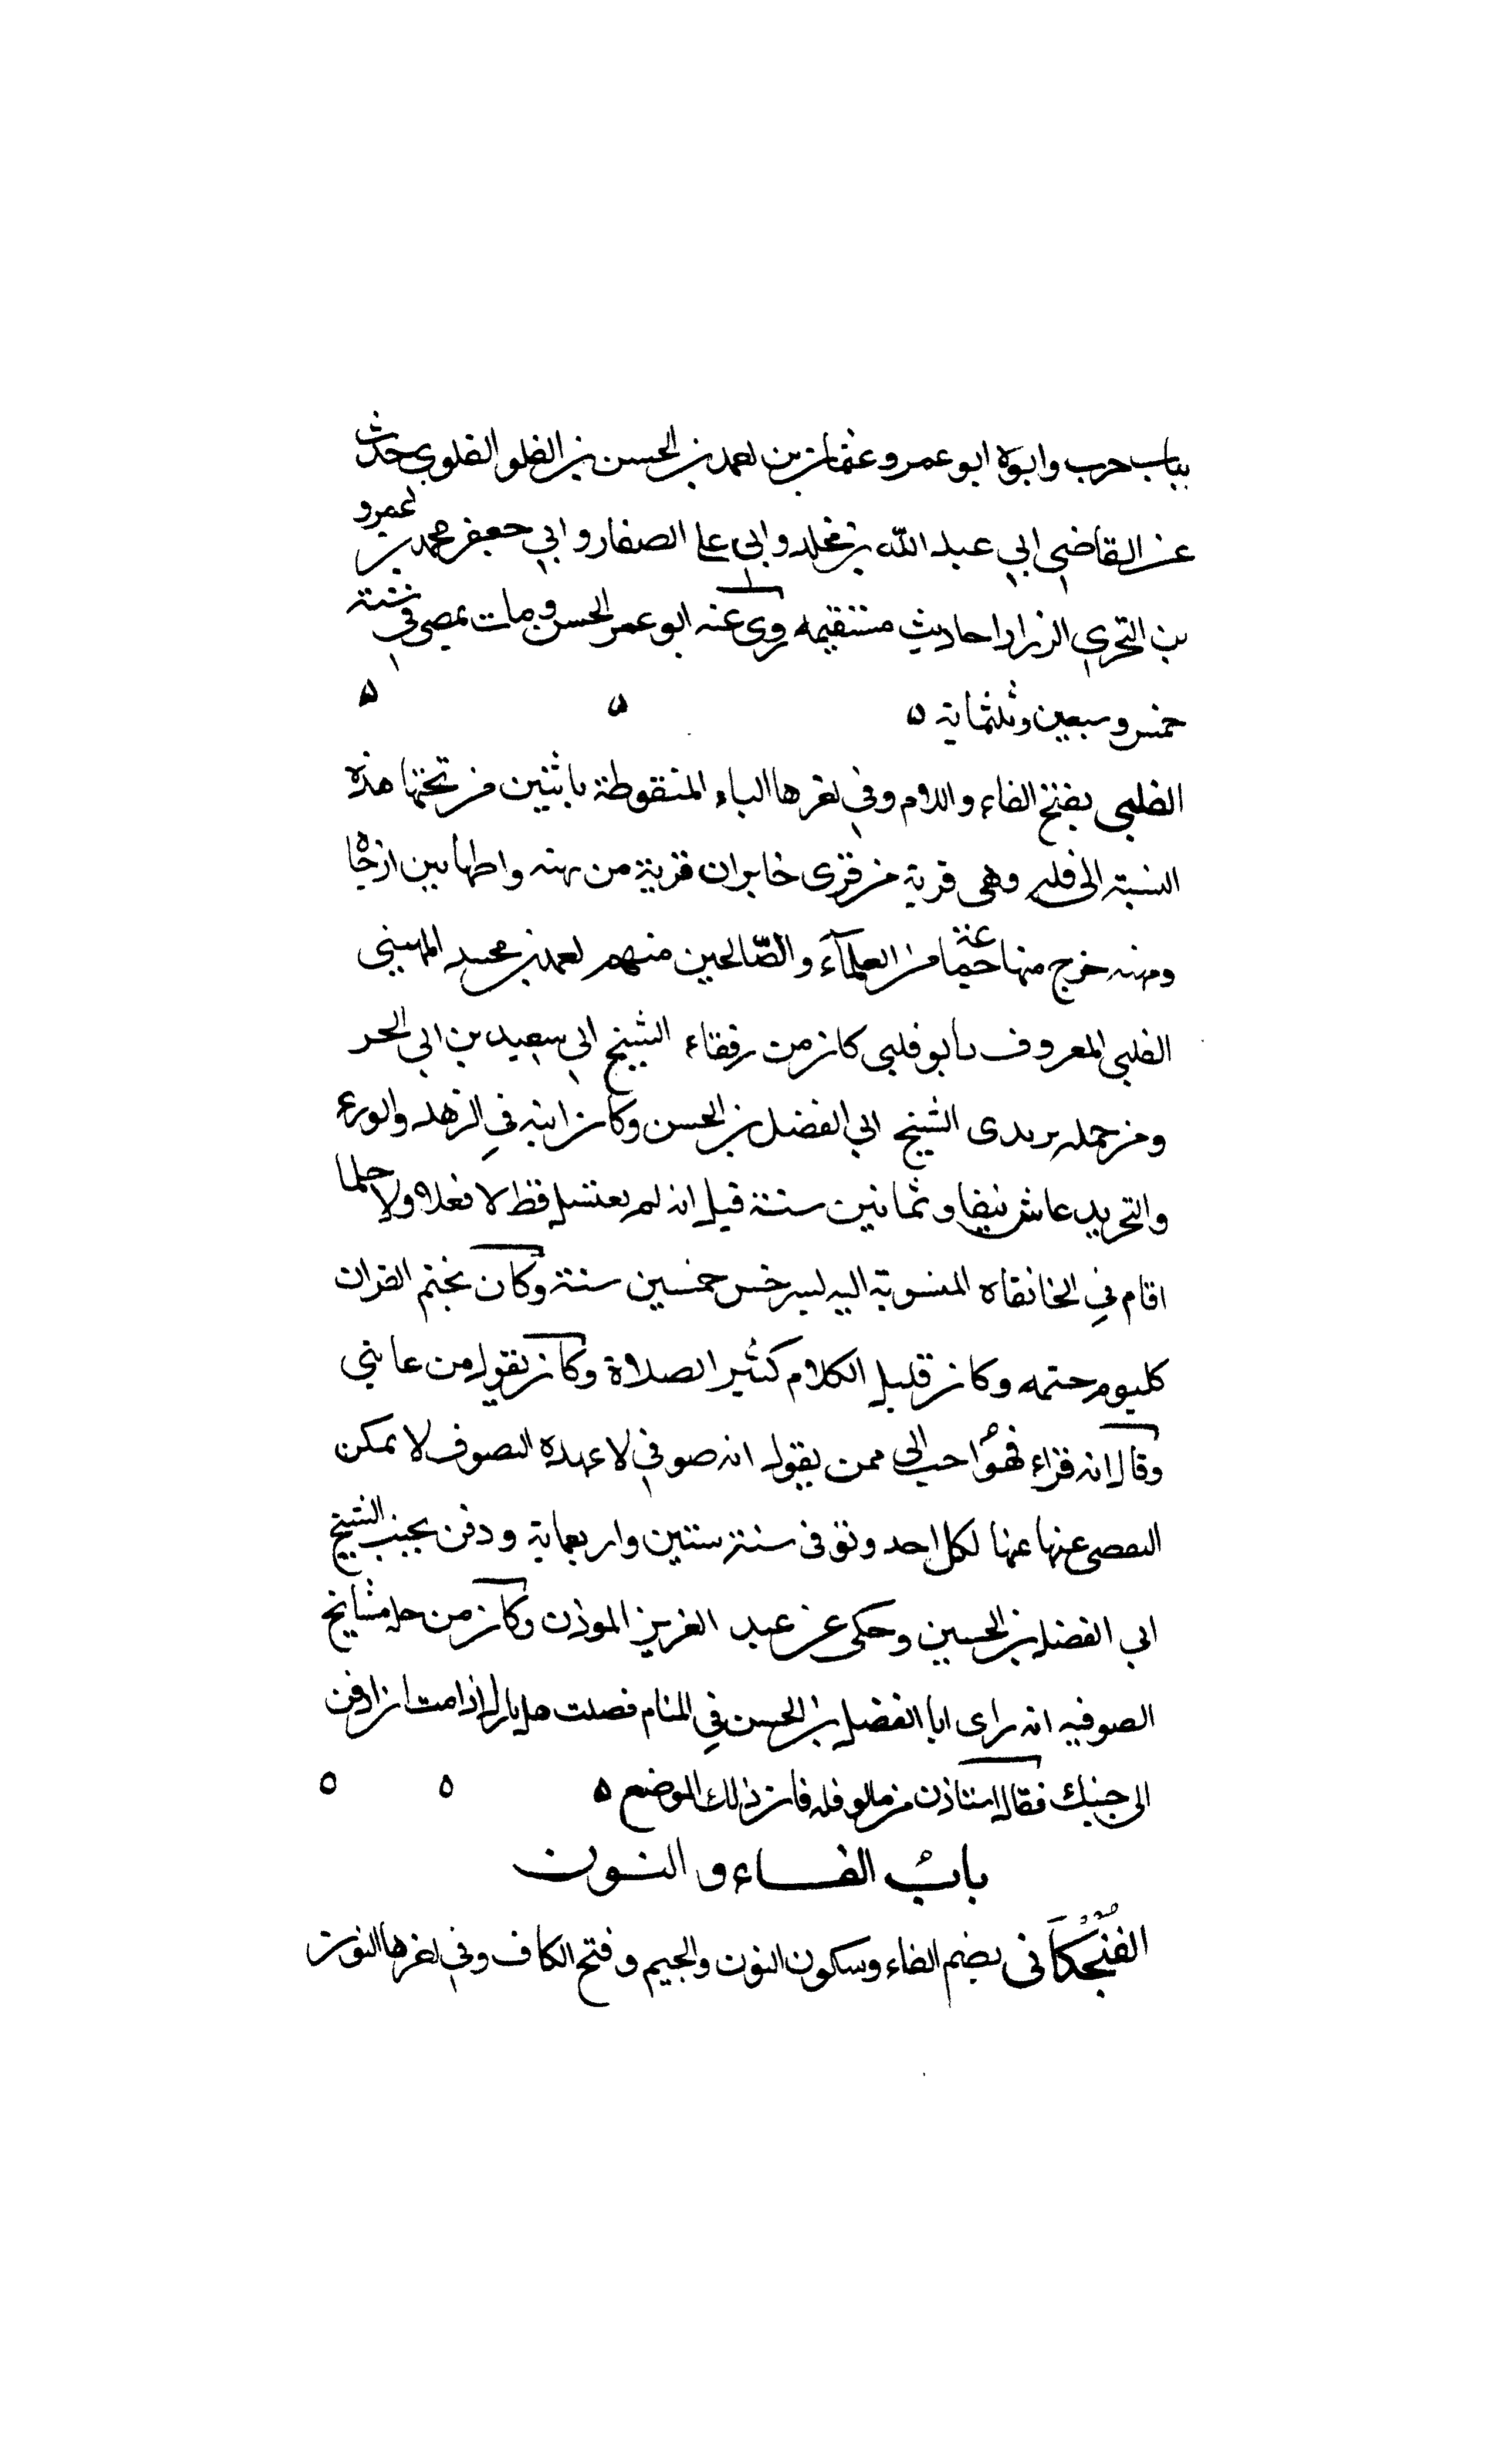 بباب حرب وابوه ابو عمرو عثمان بن احمد بن الحسن بن الفلو الفلوي حدث
عن القاضي ابي عبد الله بن مخلد وابي علي الصفار وابي جعفر محمد بن عمرو
بن البختري الرزاز احاديث مستقيمه روى عنه ابو عمر الحسن ومات بمصر في سنة
خمس وسبعين وثلثماية ه ه ه
الفلي بفتح الفاء واللام وفي اخرها الياء المنقوطة باثنين من تحتها هذه
النسبة الى فله وهي قرية من قرى خابران قريبة من ميهنه
وميهنه خرج منها جماعة من العلمآء والصّالحين منهم احمد بن محمد الميهني
الفلي المعروف بابو فلي كان من رفقاء الشيخ ابي سعيد بن ابي الخير
ومن جمله مريدى الشيخ ابي الفضل بن الحسن وكان اية في الزهد والورع
والتجريد عاش نيفا وثمانين سنة قيل انه لم يغتسل قط لا فعلا ولا حلما
اقام في الخانقاه المنسوبة اليه بسرخس خمسين سنة وكان يختم القران
كل يوم ختمه وكان قليل الكلام كثير الصلاة وكان يقول من عابني
وقال انه قراء فهو احب الي ممن يقول انه صوفي لا عهدة التصوف لا يمكن
التفصي عنها عنها لكل احد وتوفى سنة ستين واربعماية ودفن بجنب الشيخ
ابي الفضل بن الحسين وحكى عن عبد العزيز الموذن وكان من جلة مشايخ
الصوفيه انه راى ابا الفضل بن الحسن في المنام اذا مت ان ادفن
الى جنبك فقال استاذن من بالو فله فان ذلك الموضع ه ه ه
باب الفاء والنون
الفُنْجُكَاني بضم الفاء وسكون النون والجيم وفتح الكاف وفي اخرها النون